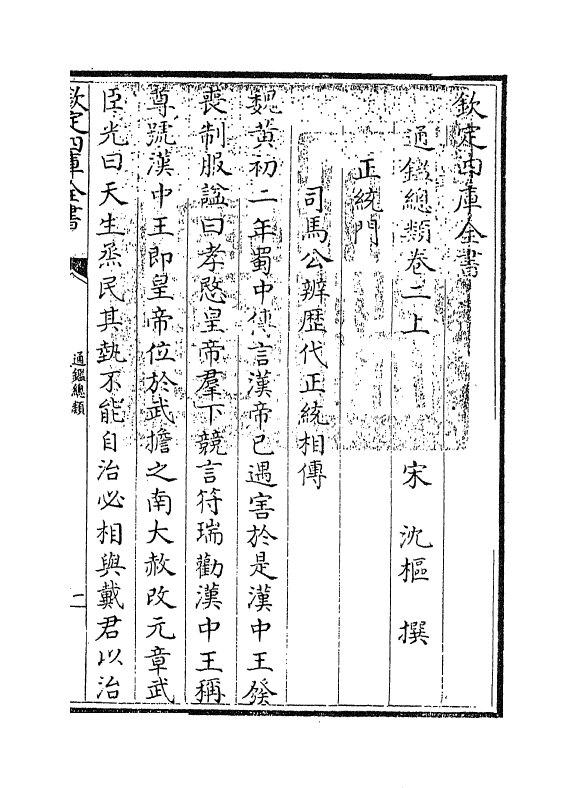 欽定四庫全書
通鑑總類卷二上　宋　沈樞　撰
正統門
司馬公辨歴代正統相傳
魏黄初二年蜀中傳言漢帝已遇害於是漢中王發
喪制服諡曰孝愍皇帝羣下競言符瑞勸漢中王稱
尊號漢中王即皇帝位於武擔之南大赦改元章武
臣光曰天生烝民其埶不能自治必相與戴君以治
欽定四庫全書
通鑑總類